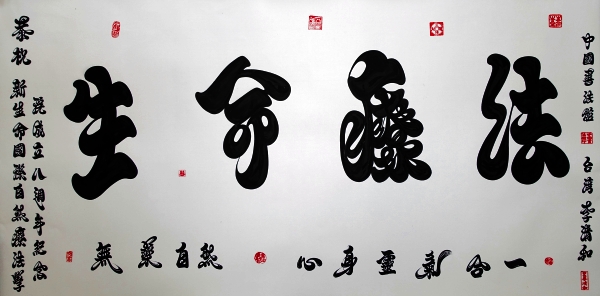 恭祝 新生命國際自然療法學
院成立八週年紀念
生命療法
無藥自然 心身靈氣合一
中國書法 台灣 李